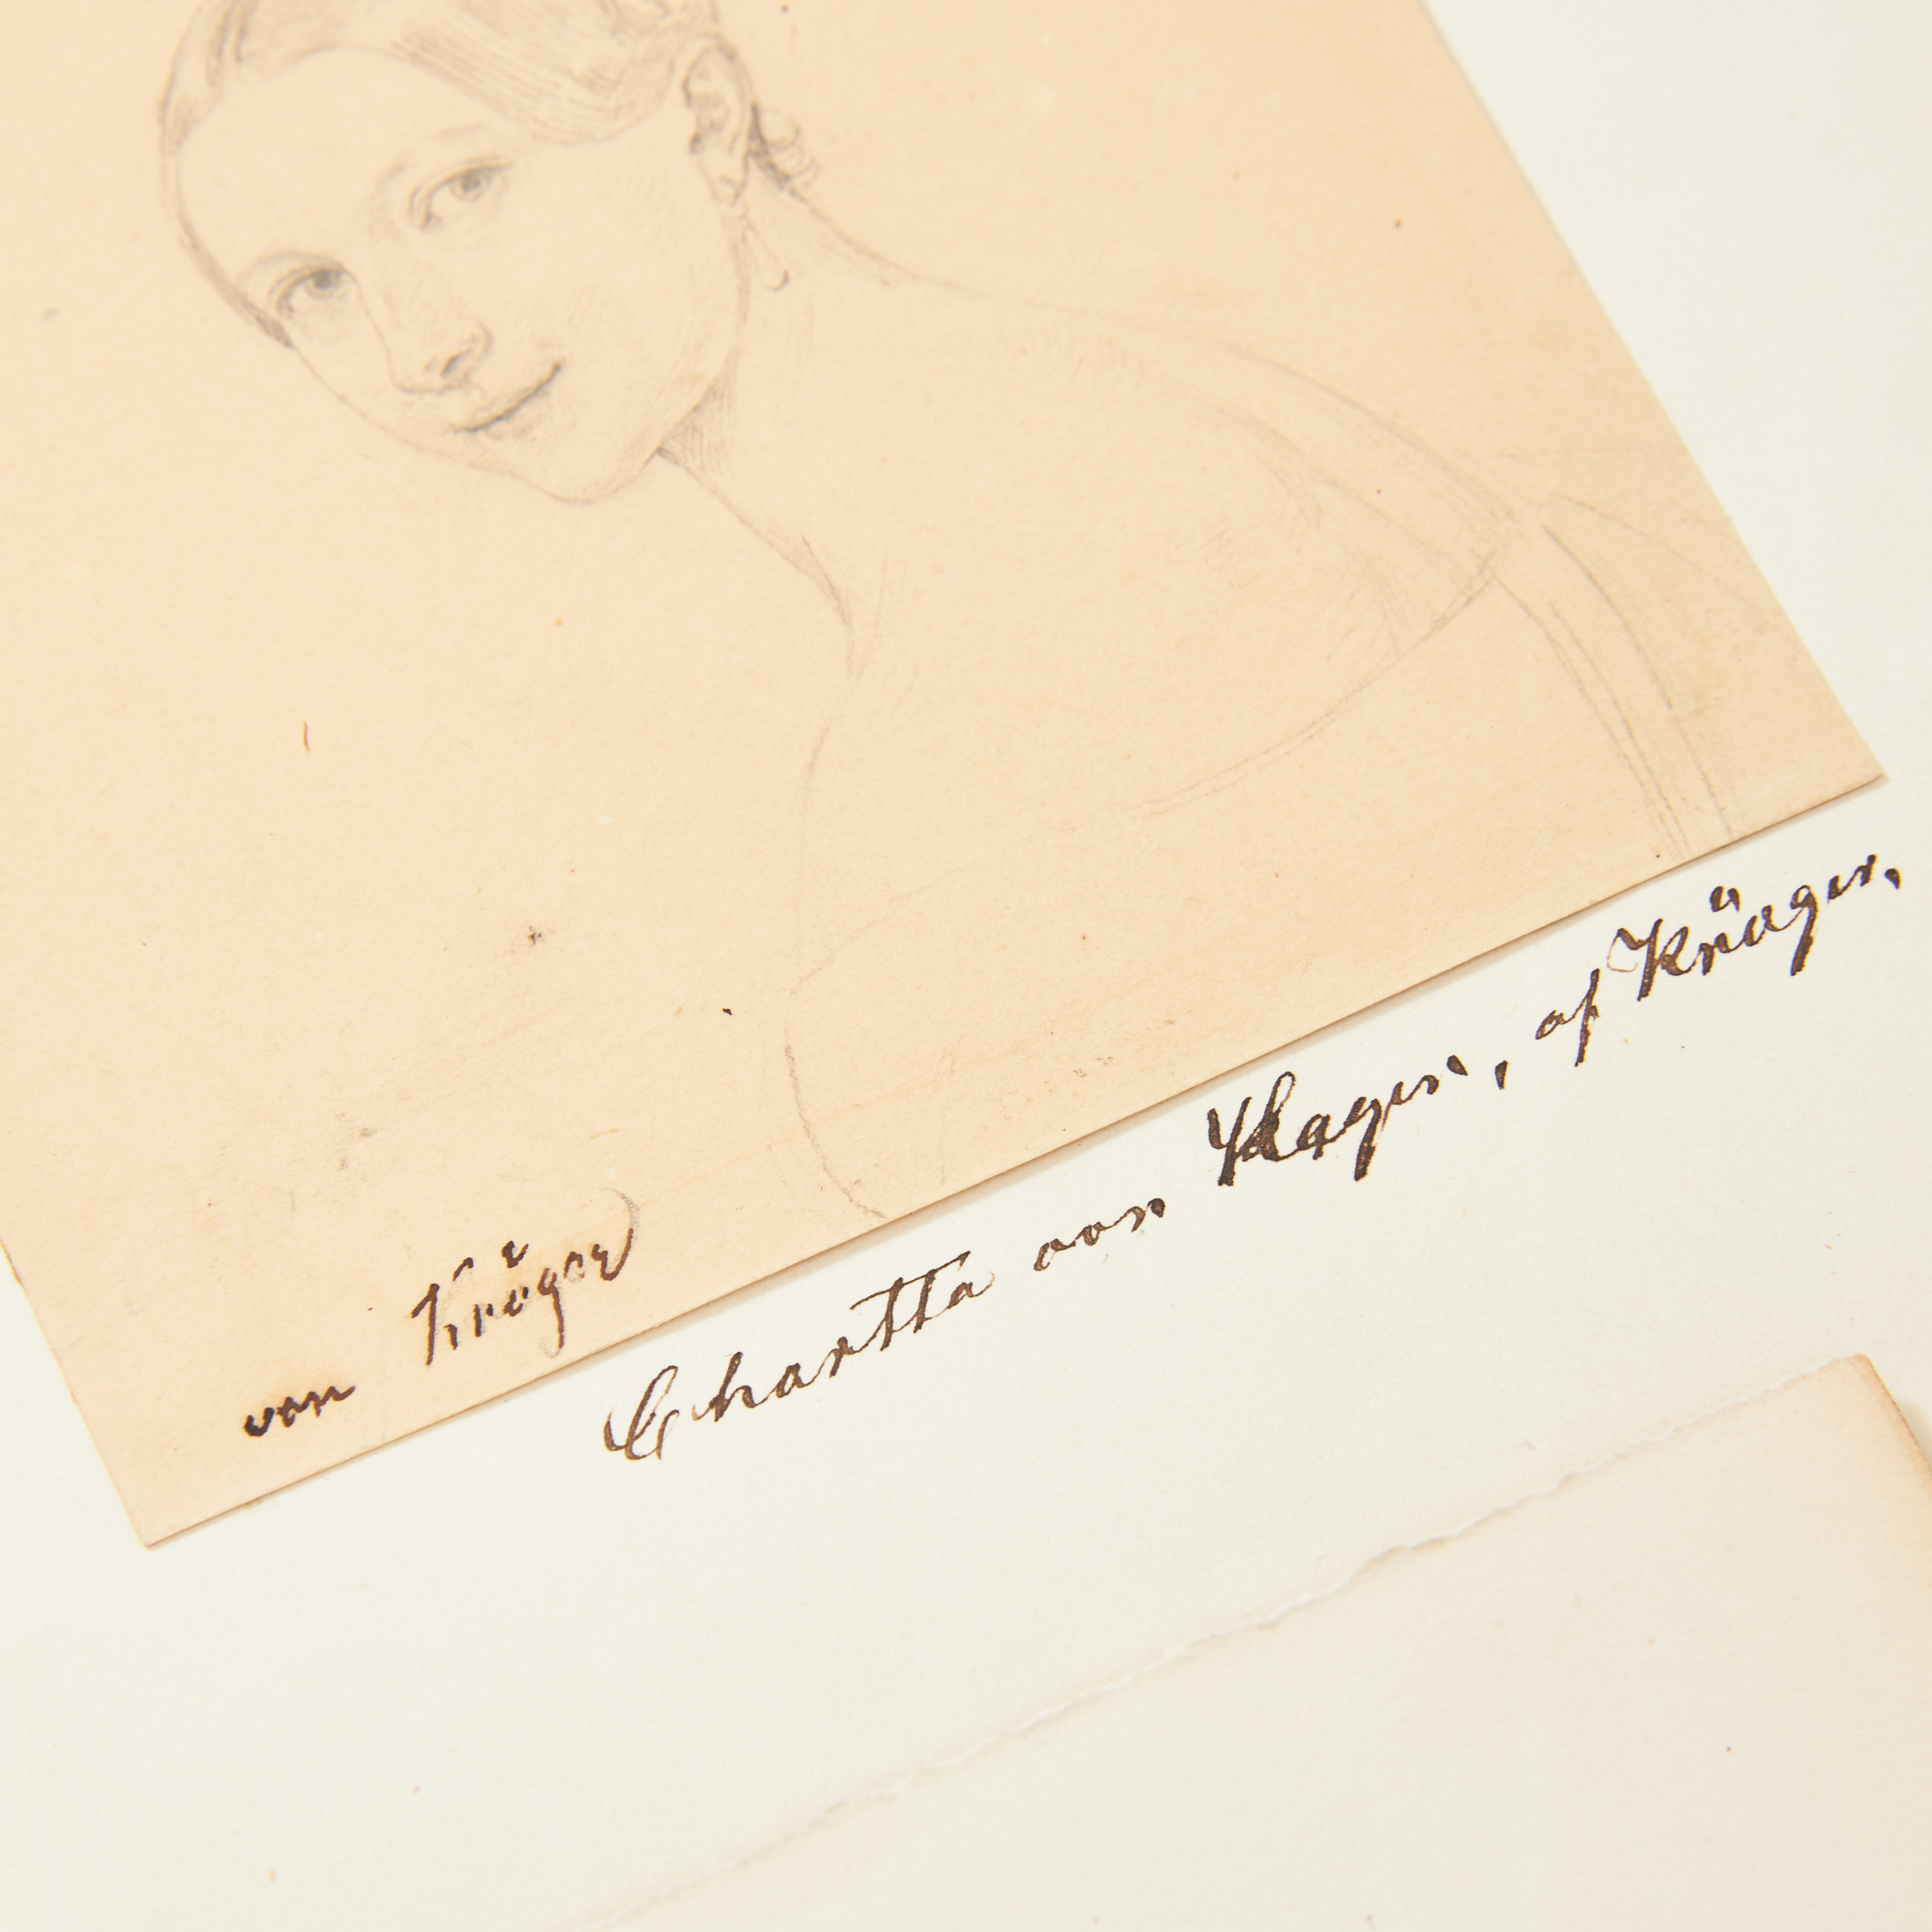 von Krüger
Charlotta von Hagen, af Krüger.